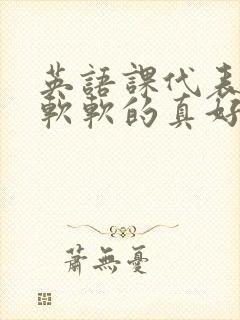 英語課代表
軟軟的真好
蕭無憂